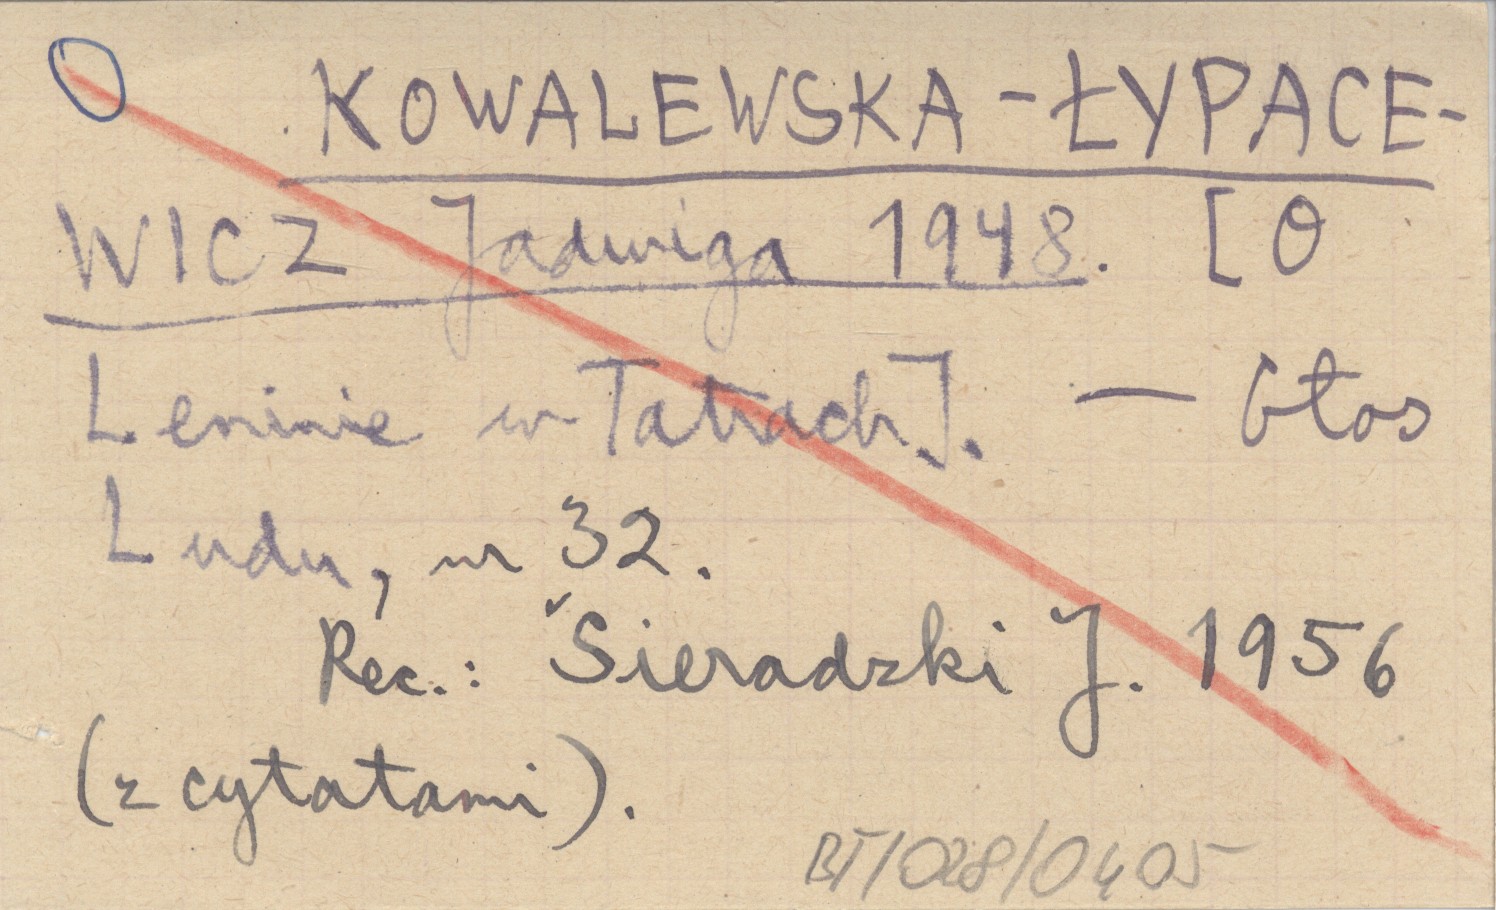 KOWALEWSKA-ŁYPACE-
WICZ Jadwiga 1948. [O
Leninie w Tatrach]. — Głos
Ludu, nr 32.
Rec.: Sieradzki J. 1956
(z cytatami).
BT/028/0405